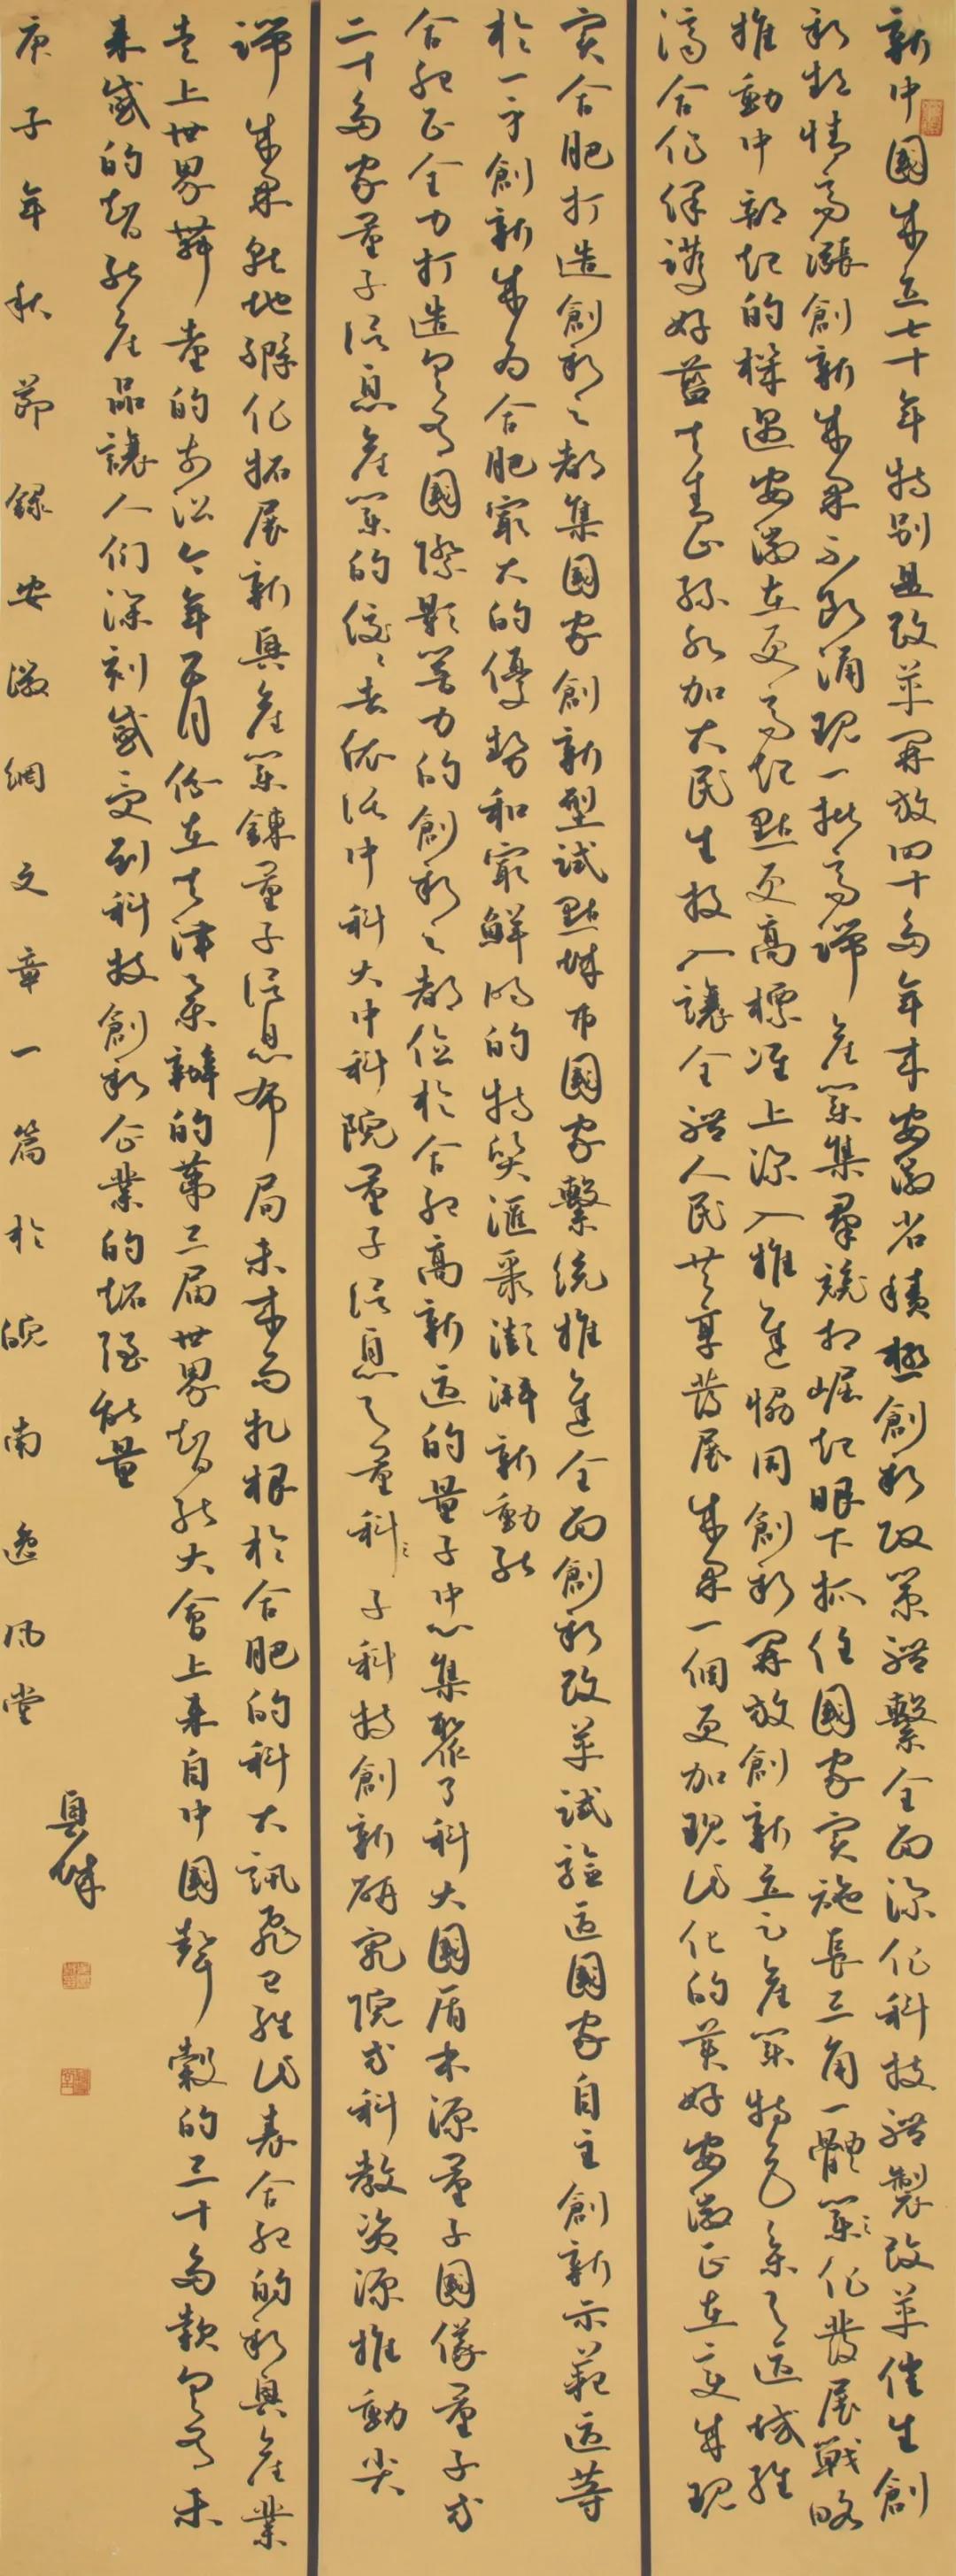 新中國成立七十年特別是改革開放四十多年來安徽省積極創新政策體繫全面深化科技體製改革催生創
新熱情高漲創新成果不斷涌現一批高端產業集群競相崛起眼下抓住國家實施長三角一體化發展戰略
推動中部崛起的機遇安徽在更高起點更高標準上深入推進協同創新開放創新立足產業特色參與區域經
濟合作保護好藍天青山綠水加大民生投入讓全體人民共享發展成果一個更加現代化的美好安徽正在變成現
實合肥打造創新之都集國家創新型試點城市國家繫統推進全面創新改革試驗區國家自主創新示範區等
於一身創新成為合肥最大的優勢和最鮮明的特質匯聚澎湃新動能
合肥正全力打造具有國際影響力的創新之都位於合肥高新區的量子中心集聚了科大國盾本源量子國儀量子等
二十多家量子信息產業的佼佼者依託中科大中科院量子信息與量子科技創新研究院等科教資源推動尖
端成果就地孵化拓展新興產業鏈量子信息布局未來而扎根於合肥的科大訊飛已經代表合肥的新興產業
走上世界舞臺的前沿今年五月份在天津舉辦的第三屆世界智能大會上來自中國聲穀的三十多款具有未
來感的智能產品讓人們深刻感受到科技創新企業的超強能量
庚子年秋節錄安徽網文章一篇於皖南逸風堂